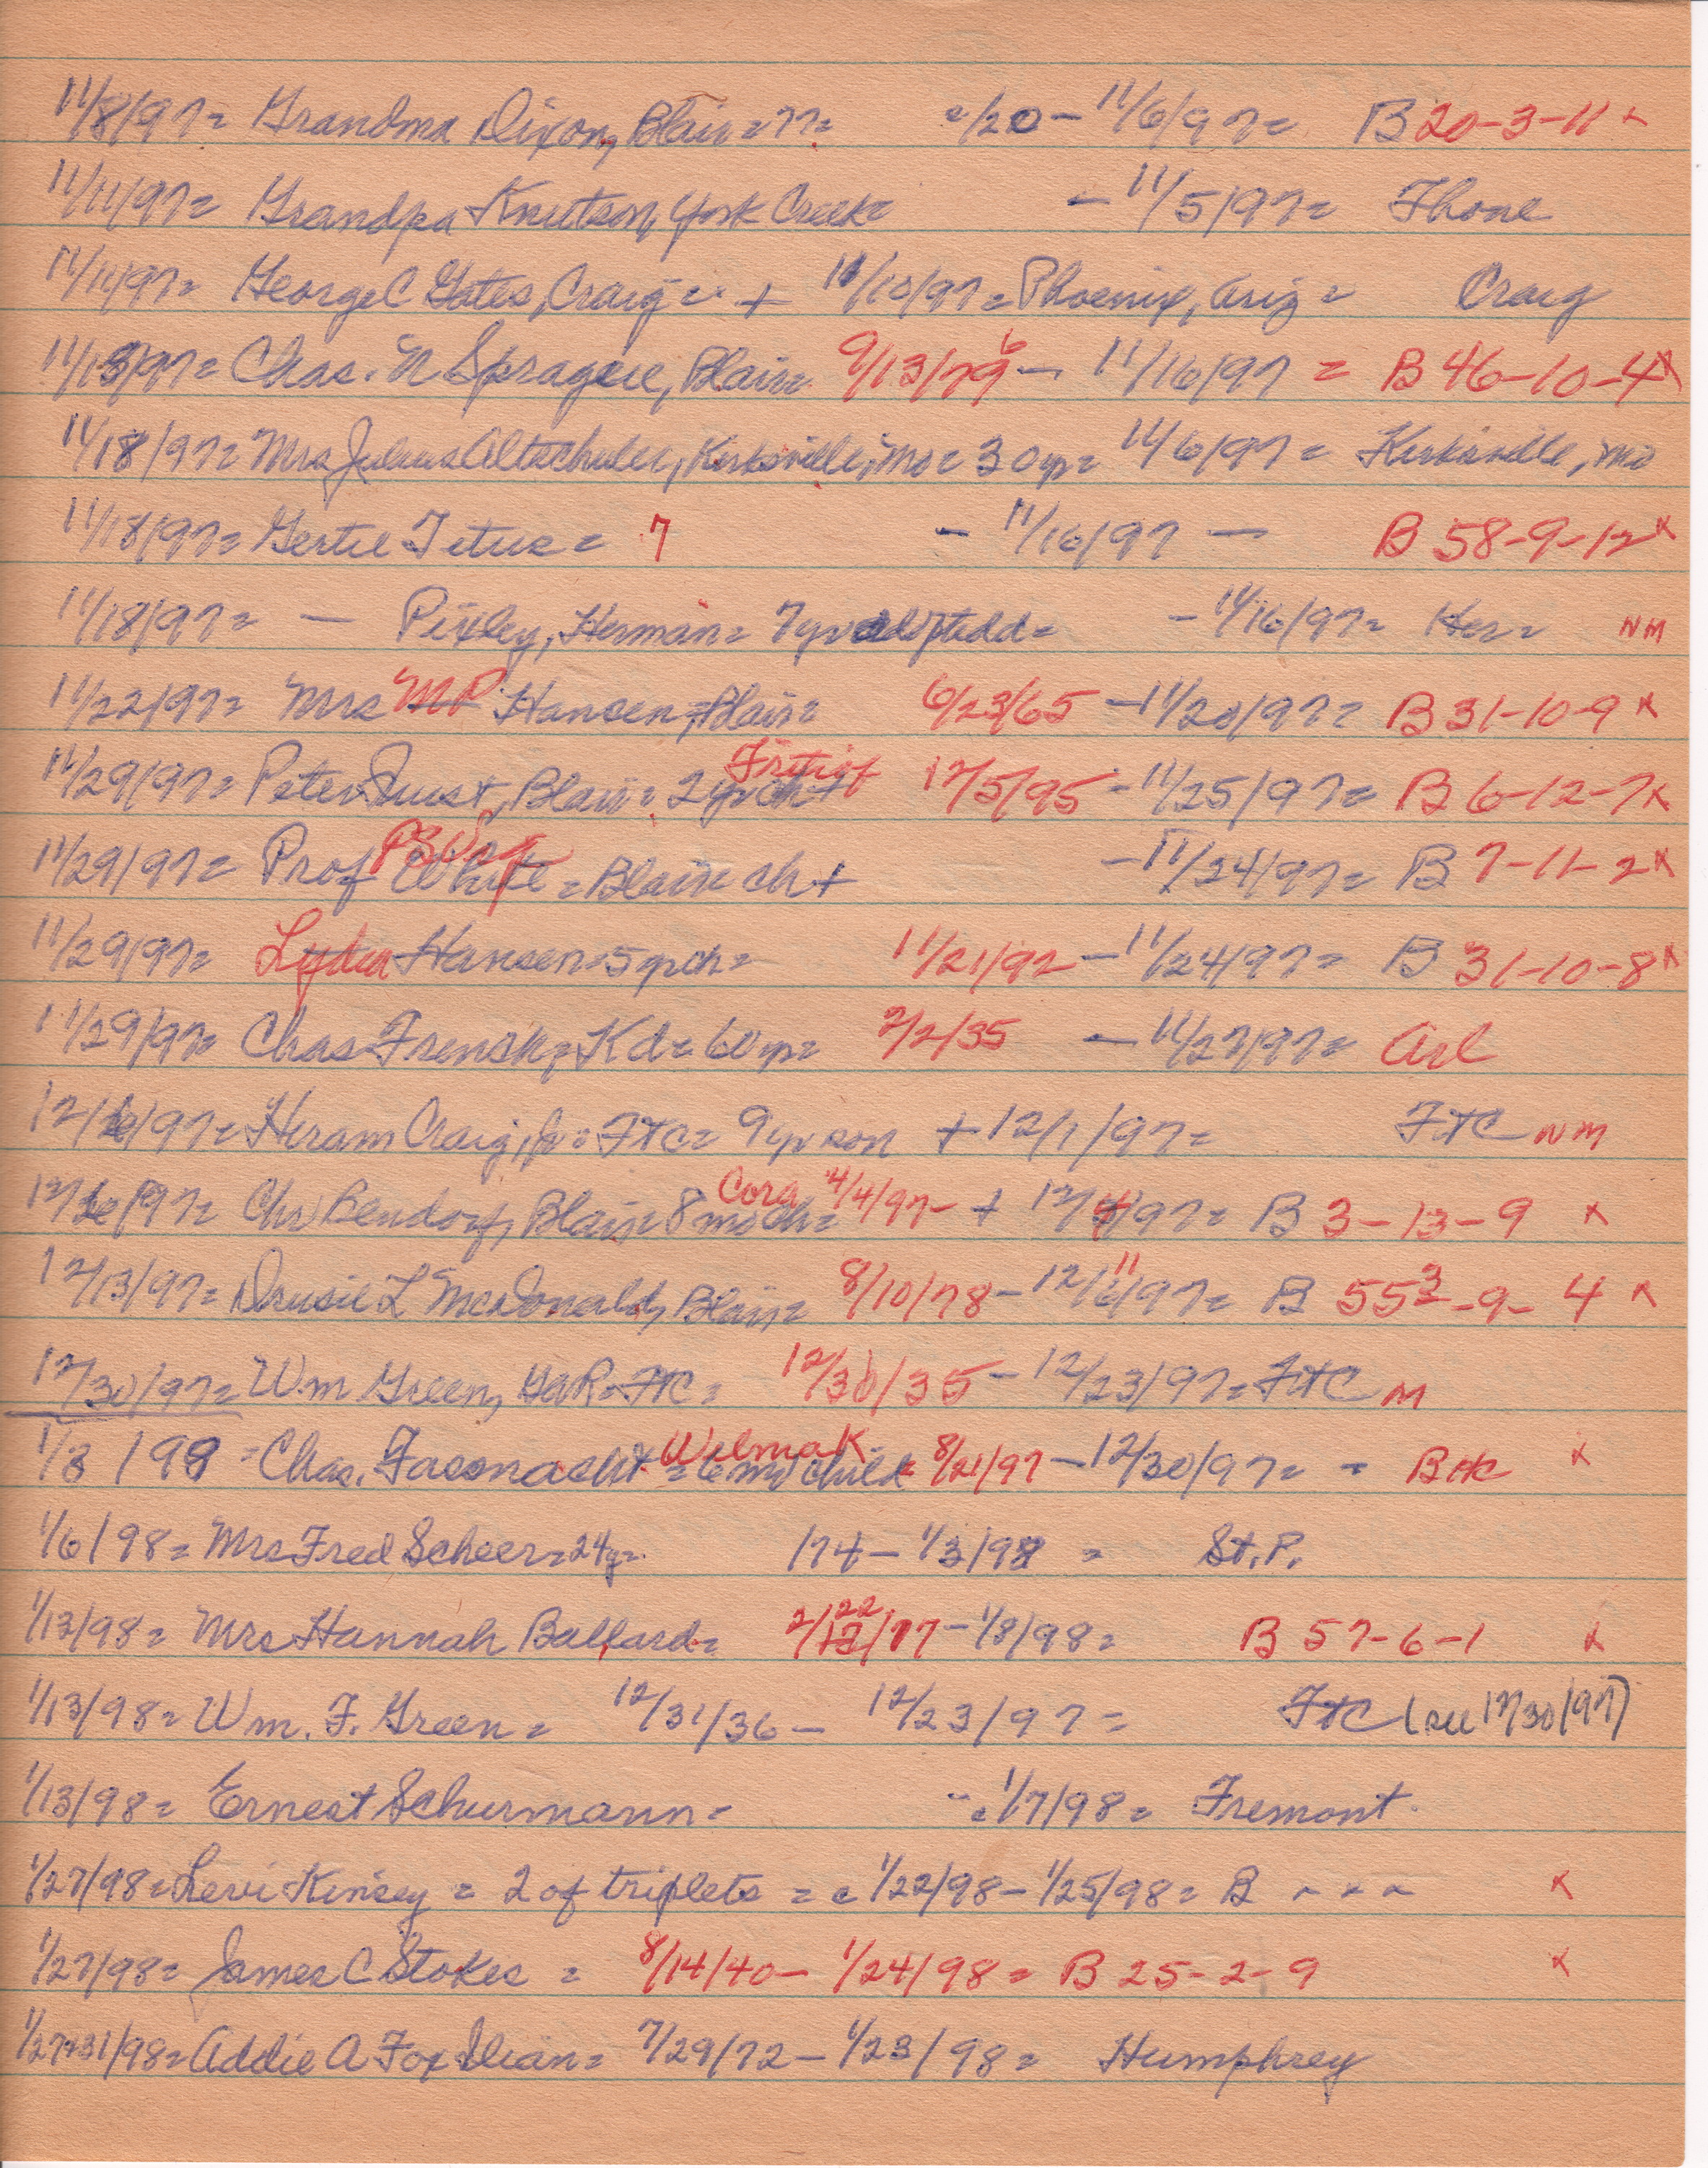 11/8/97= Grandma Dixon, Blair=77= =/20-11/6/97= B 20-3-11 x
11/11/97= Grandpa Knutson, York Creek= -11/5/97= Thone
11/11/97= George C Gates, Craig= + 11/10/97= Phoenix, Ariz= Craig
11/18/97= Chas. N Sprague, Blair= 9/13/79 6 - 11/16/97 = B 46-10-4 x
11/18/97= Mrs Julius Altschuler, Kirksville, Mo= 30yr= 11/6/97= Kirksville, Mo
11/18/97= Gertie Titus= 7 - 11/16/97 - B 58-9-12 x
11/18/97= - Pixley, Herman= 7yr adopted d= -11/16/97= Her= NM
11/22/97= Mrs MP Hansen, Blair= 6/23/65 -11/20/97= B 31-10-9 x
11/29/97= Peter Juust, Blair= 2yr ch+ Fritiof 12/5/95 -11/25/97= B 6-12-7 x
11/29/97= Prof White = Blair ch+ -11/24/97= B 7-11-2 x
11/29/97= Lydia Hansen=5yr ch= 11/21/92 -11/24/97= B 31-10-8 x
11/29/97= Chas Frensk, Kd=60yr= 2/2/35 -11/27/97= Arl
12/6/97= Hiram Craig, Jr= FtC= 9yr son +12/1/97= FtC NM
12/6/97= Chr Bendorf, Blair= 8mo ch= Cora 4/4/97- + 12/4/97= B 3-13-9 x
12/13/97= Drusie L McDonald, Blair= 8/10/78-12/6/97= 11 B 55 3/2-9-4 x
12/30/97= Wm Green, GaR=FtC= 12/30/35-12/23/97=FtC M
1/3/98 =Chas. Fasonacht= 6mo child= Wilma K 8/21/97-12/30/97= = B HC x
1/6/98= Mrs Fred Scheer=24y= /74-1/3/98 = St. P.
1/13/98= Mrs Hannah Ballard= 2/12/77 22 -1/8/98= B 57-6-1 x
1/13/98= Wm. F. Green= 12/31/36- 12/23/97= FtC (see 12/30/97)
1/13/98= Ernest Schurmann= -=1/7/98= Fremont.
1/27/98= Levi Kinsey = 2 of triplets = c 1/22/98-1/25/98= B - - - x
1/27/98= James C Stokes = 8/14/40- 1/24/98= B 25-2-9 x
1/27+31/98= Addie A Fox Dian= 7/29/72-1/23/98= Humphrey